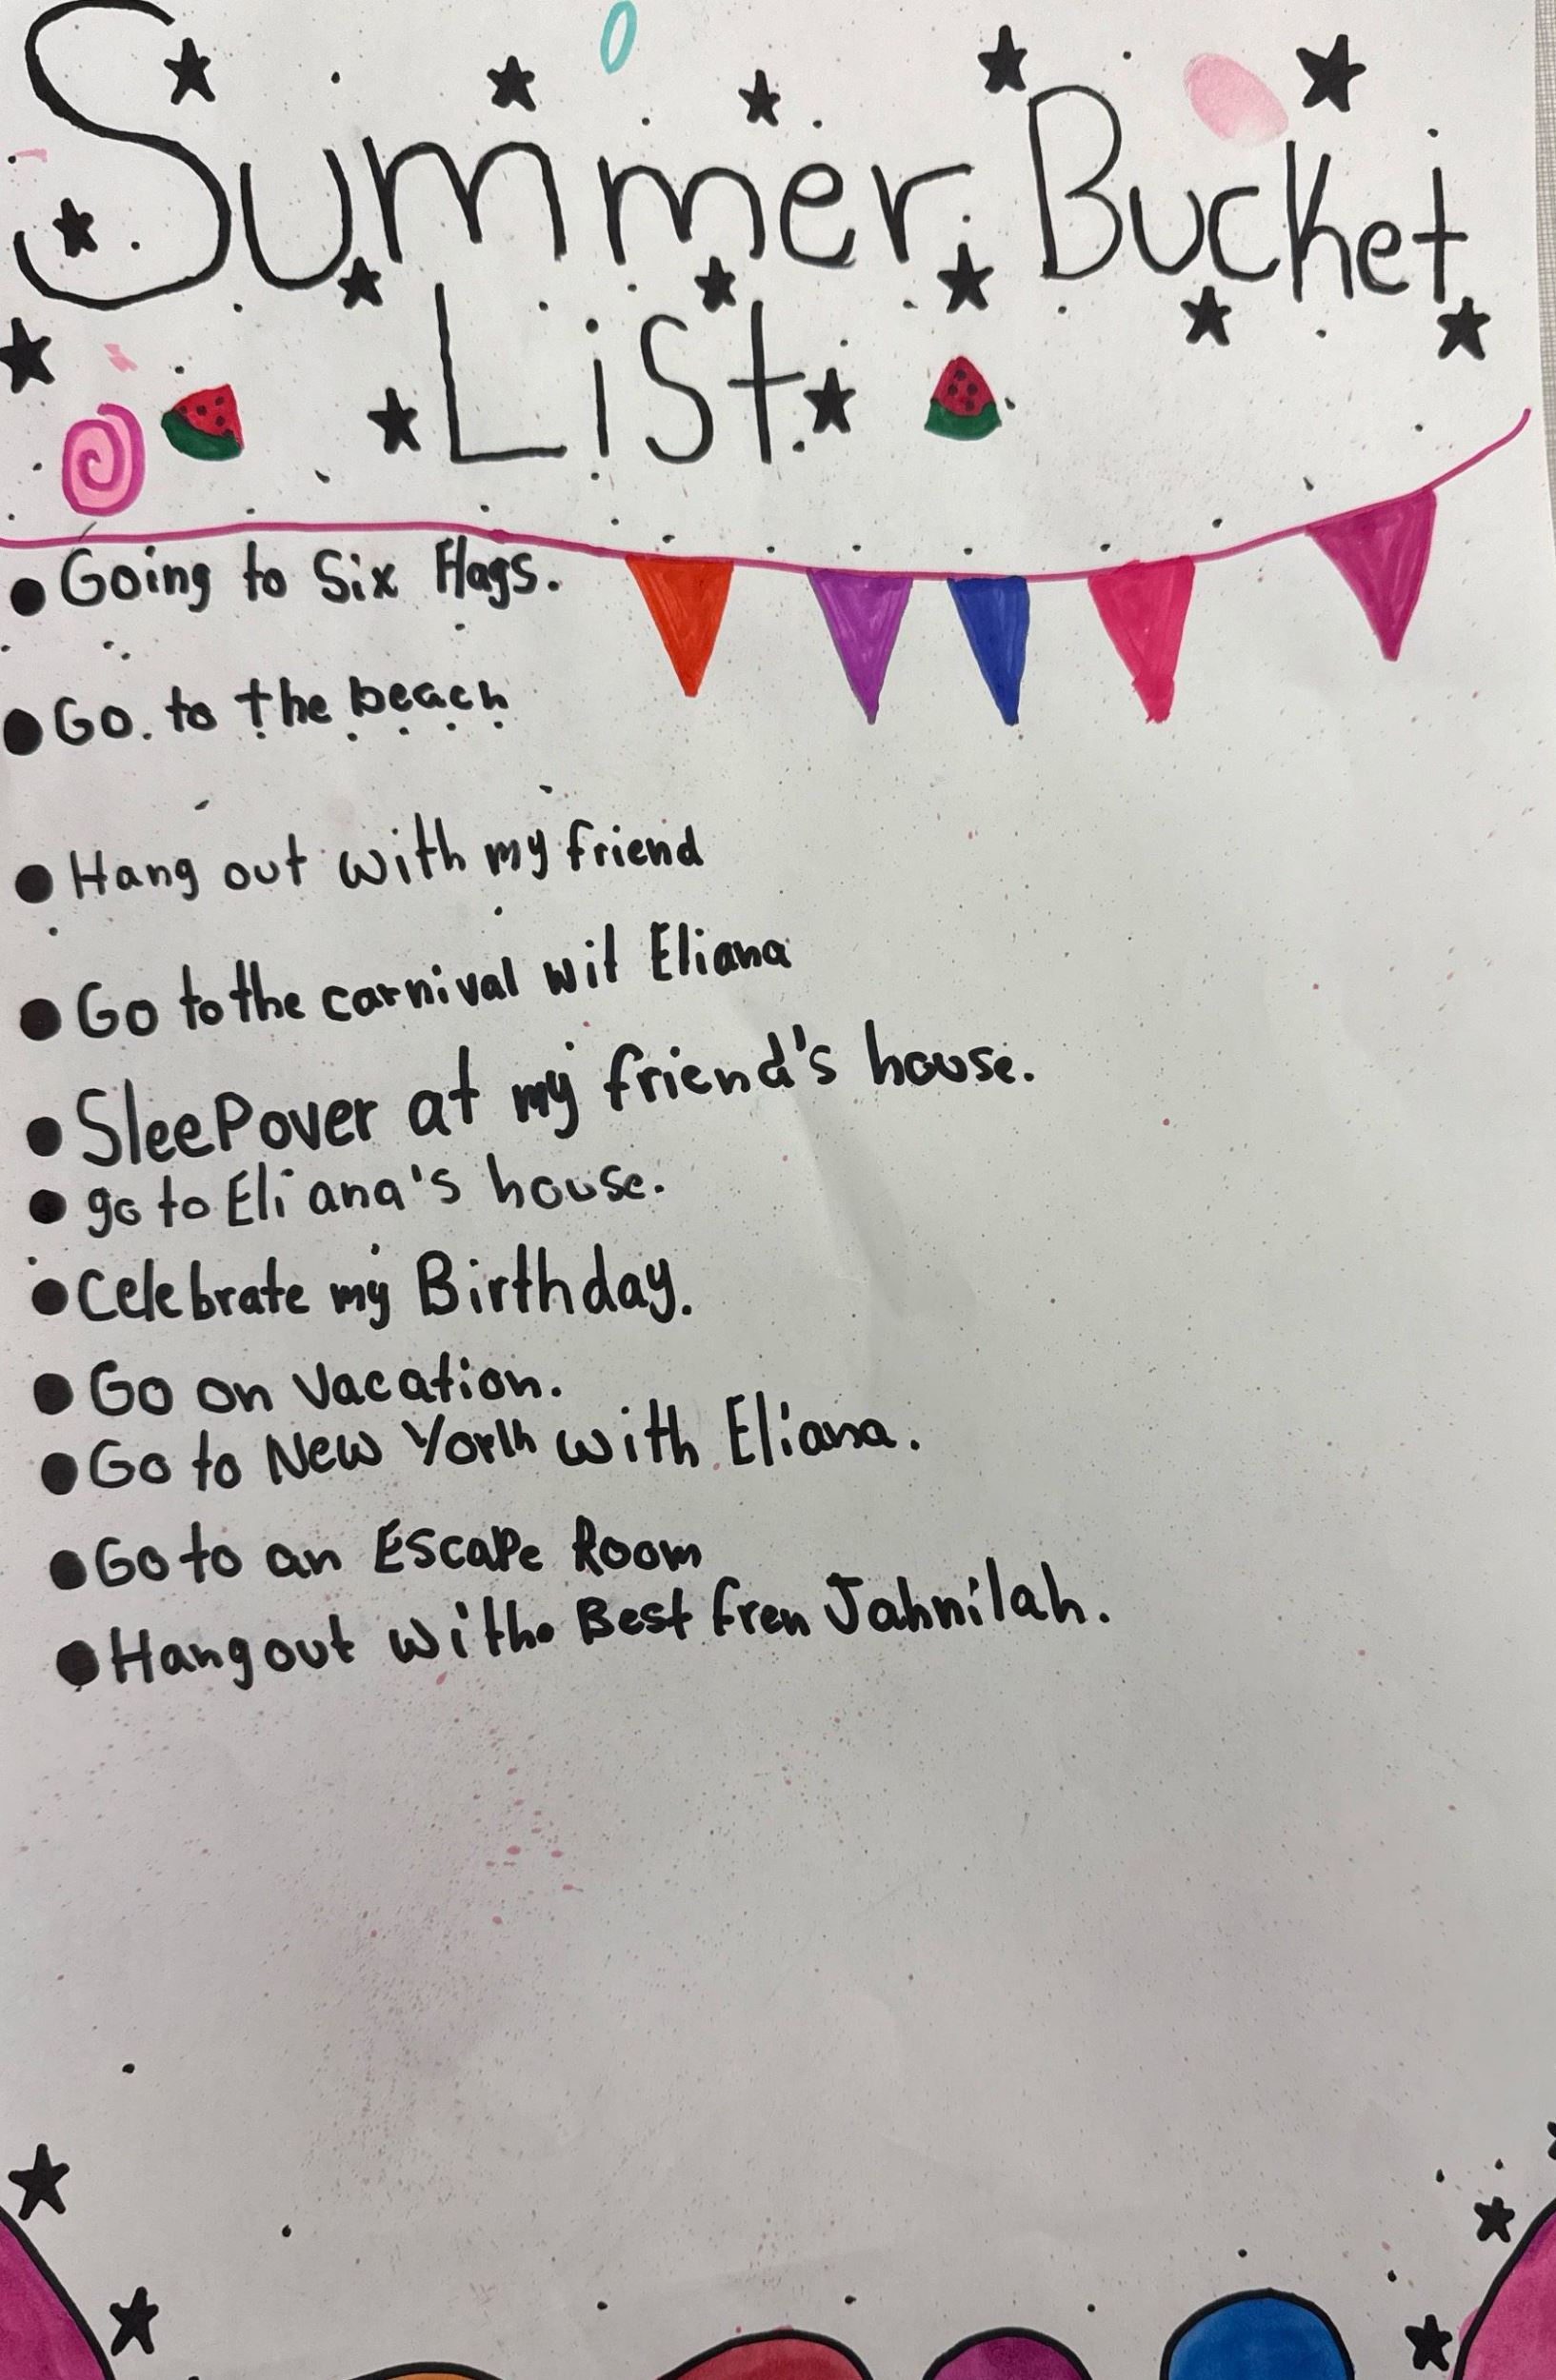 Summer Bucket
List
Going to Six Flags.
Go to the beach
Hang out with my friend
Go to the carnival wit Eliana
SleePover at my friend's house.
go to Eliana's house.
Celebrate my Birthday.
Go on vacation.
Go to New York with Eliana.
Go to an Escape Room
Hang out with Best fren Jahnilah.